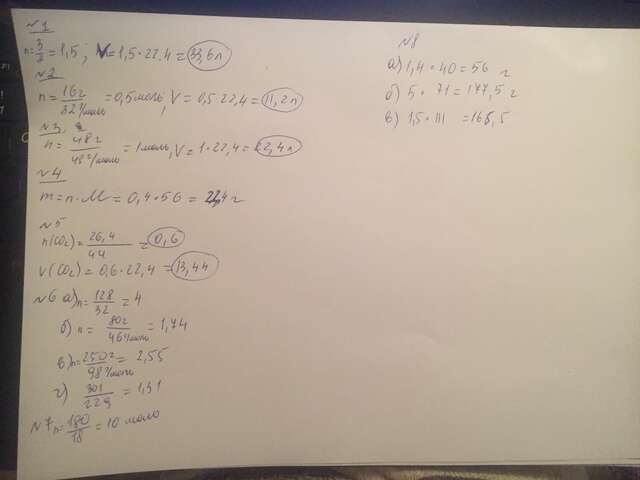 N1
n = 3/2 = 1,5; V = 1,5 · 22,4 = 33,6 л
N2
n = 16 г / 32 г/моль = 0,5 моль, V = 0,5 · 22,4 = 11,2 л
N3
n = 48 г / 48 г/моль = 1 моль, V = 1 · 22,4 = 22,4 л
N4
m = n · M = 0,4 · 56 = 22,4 г
N5
n(CO2) = 26,4 / 44 = 0,6
V(CO2) = 0,6 · 22,4 = 13,44
N6 а) n = 128 / 32 = 4
б) n = 80 г / 46 г/моль = 1,74
в) n = 250 г / 98 г/моль = 2,55
г) 301 / 229 = 1,31
N7 n = 180 / 18 = 10 моль
N8
а) 1,4 · 40 = 56 г
б) 5 · 71 = 177,5 г
в) 1,5 · 111 = 166,5